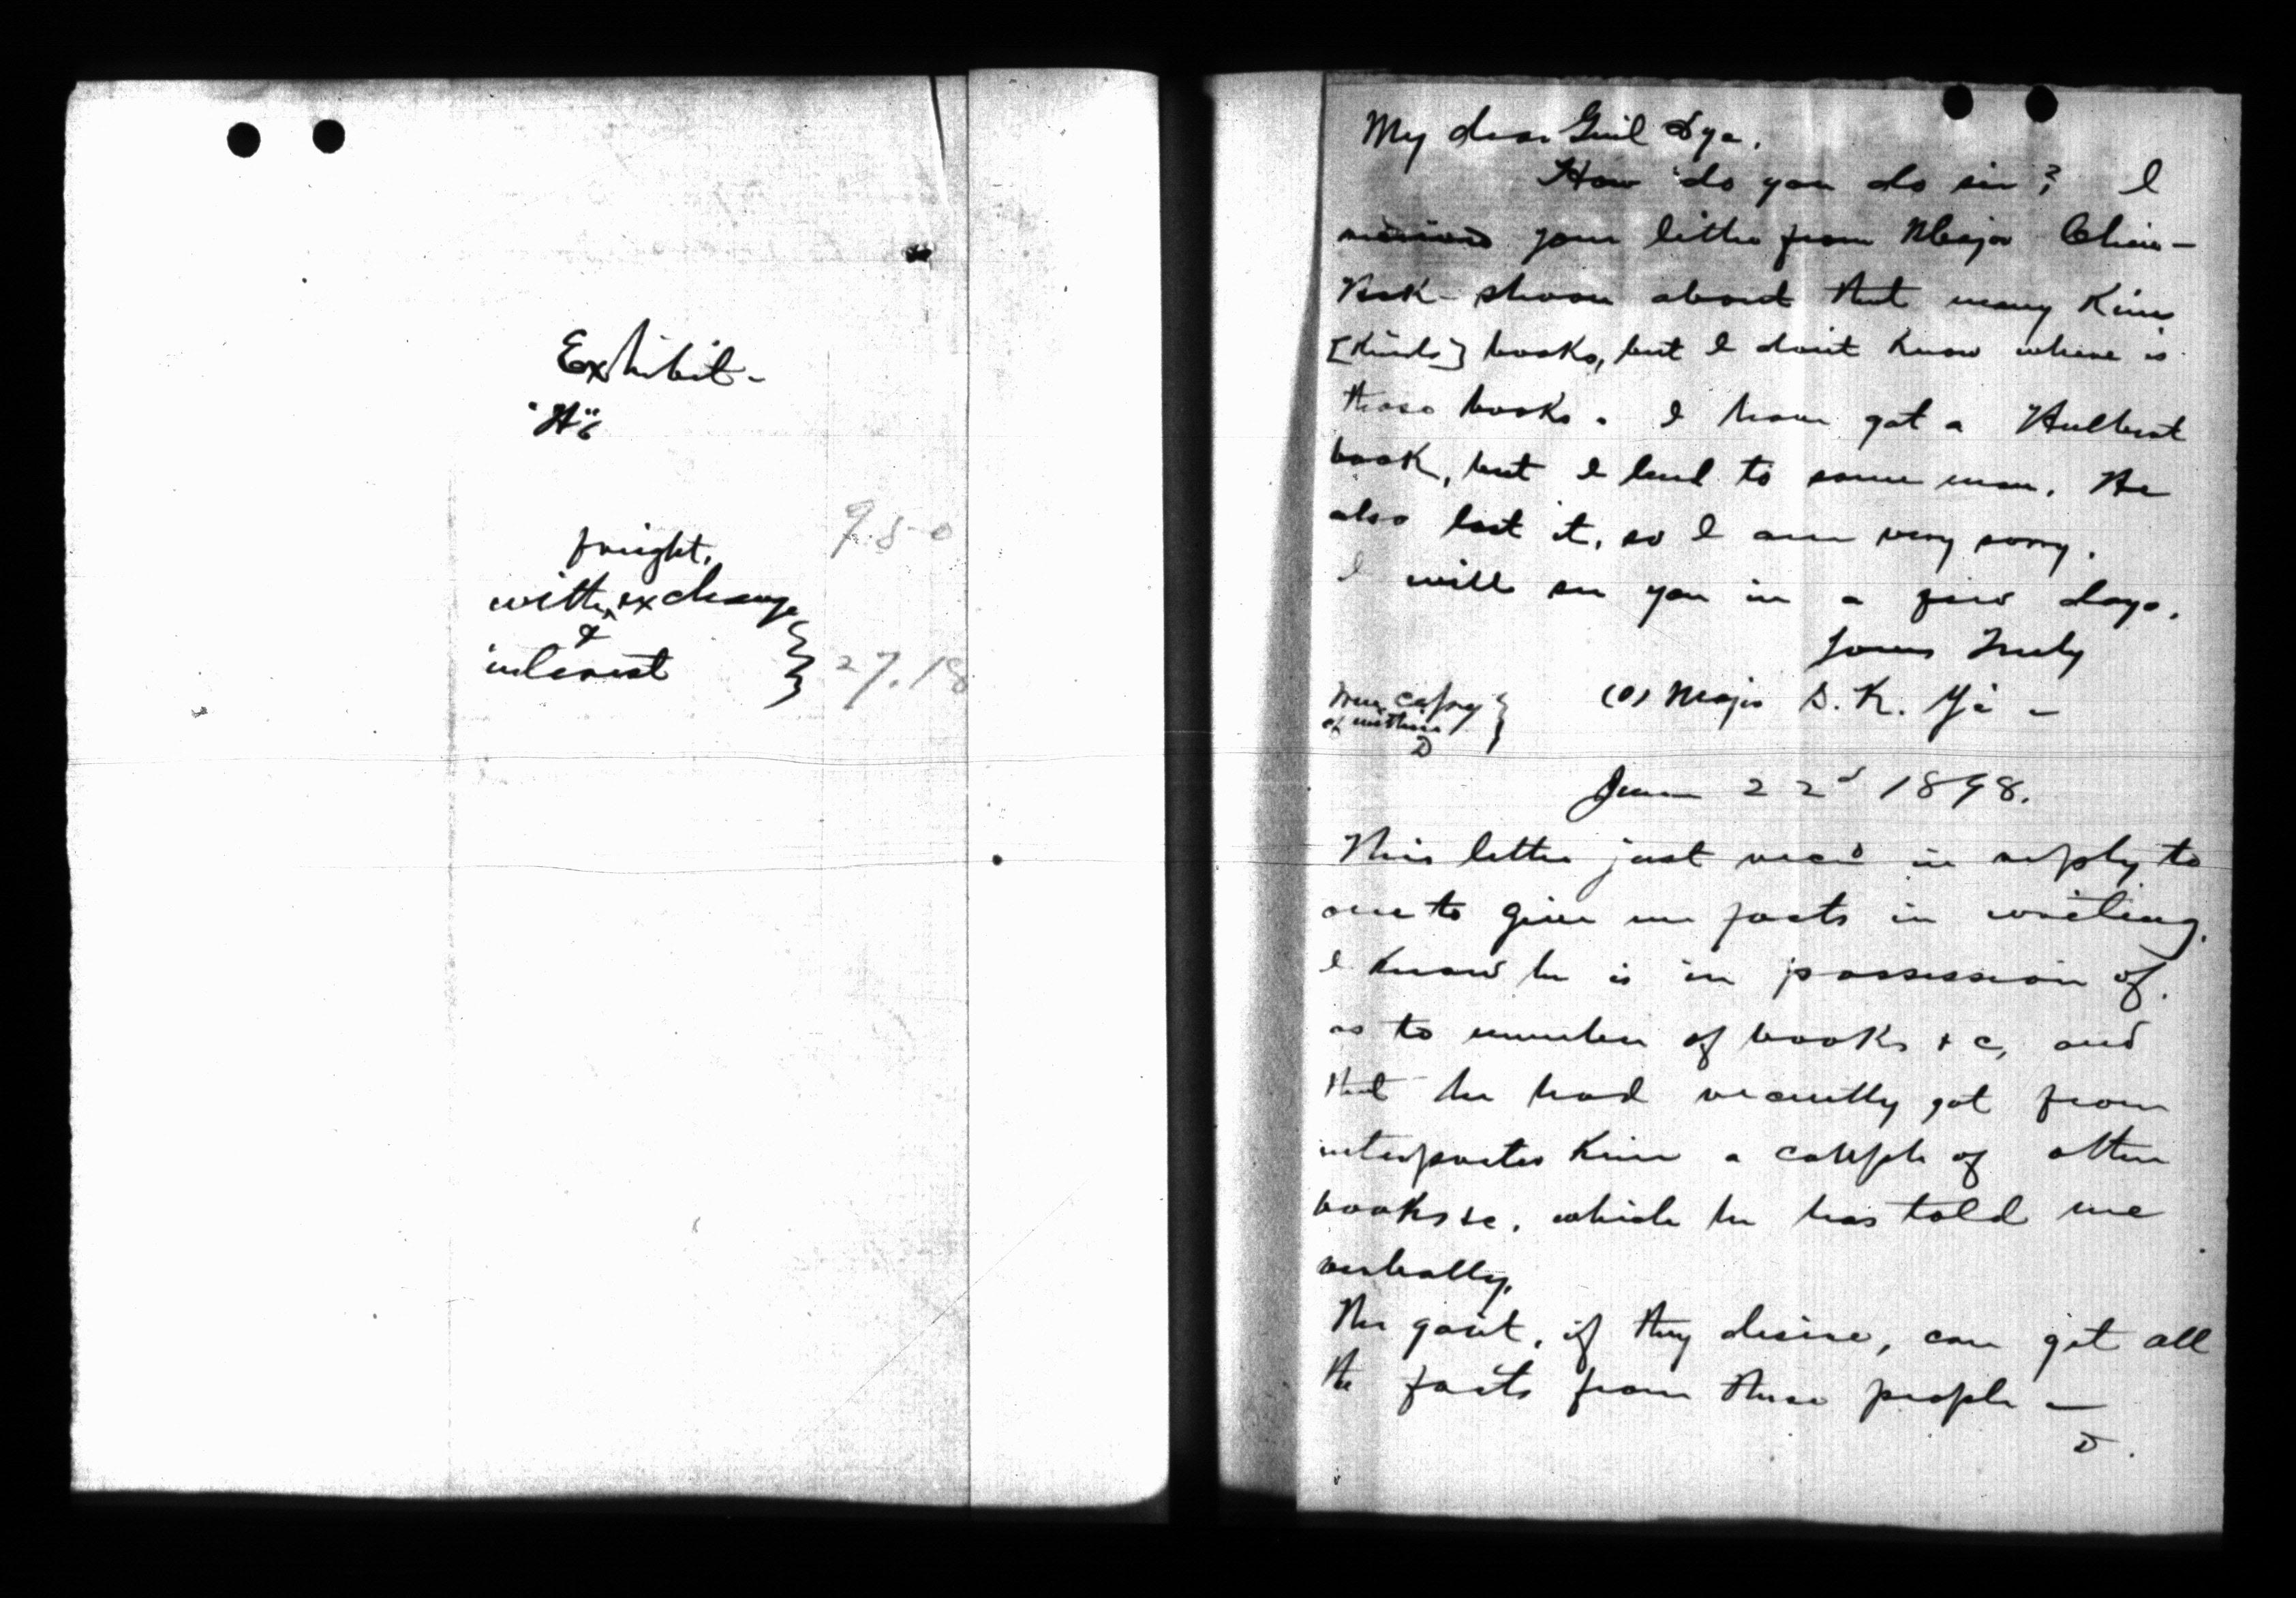 Exhibit-
"H"
9.50
freight,
with exchange
&
interest } 27.18
My dear Gen'l Dye.
How do you do sir? I
received your letter from Major Chin-
shoon about that many Kins
[Kinds] books, but I don't know where is
those books. I have got a Hulbert
book, but I lend to some man. He
also lost it, so I am very sorry.
I will see you in a few days.
Yours Truly
(s) Major S. K. Ye -
True copy
of within }
D
June 22d 1898.
This letter just rec'd in reply to
one to give me facts in writing
I know he is in possession of.
as to number of books &c, and
that he had recently got from
interpreter Kim a couple of other
books &c. which he has told me
verbally.
The gov't, if they desire, can get all
the facts from these people -
D.